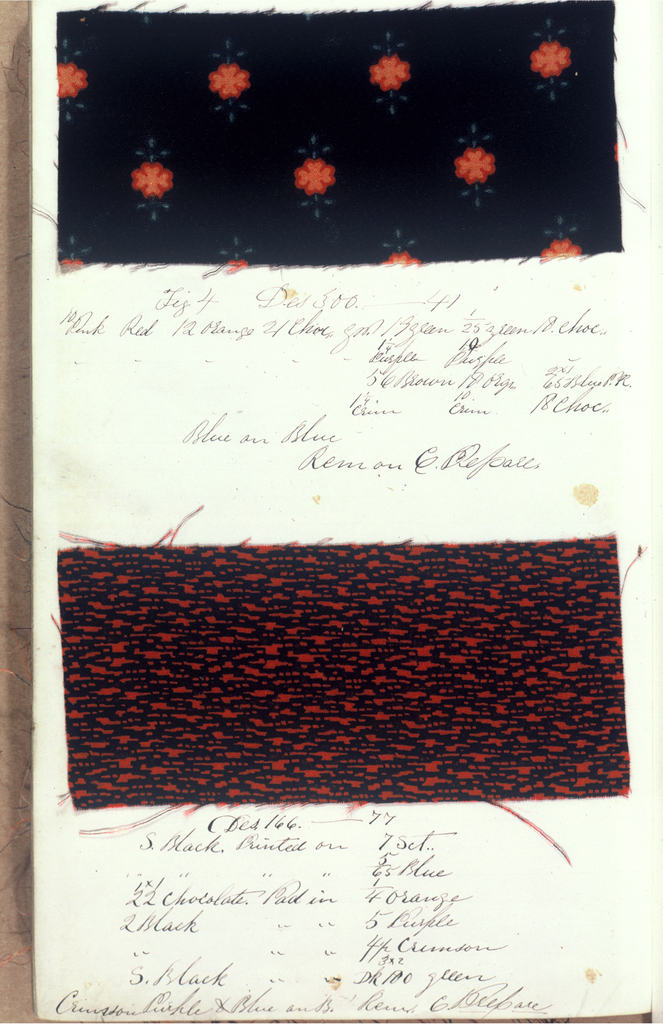 Fig. 4 Des 300. — 41
10 Pink Red 12 Orange 21 Choc, 19 green 1/25 green 18. choc.
" " " " " 14 Purple 10 Purple
56 Brown 18 Orge 2x1 65 Blue P.R.
14 Crim 10 Crim. 18 Choc.
Blue on Blue
Rem on C. Prepare.
Des 166. — 77
S. Black. Printed on 7 Sct..
" " " " 5/65 Blue
1x1 22 chocolate. Pad in 1/4 Orange
2 Black " " 5 Purple
" " " 4p Crimson
S. Black " " 3x2 Dk 100 green
Crimson Purple & Blue on B. Rem. C Prepare